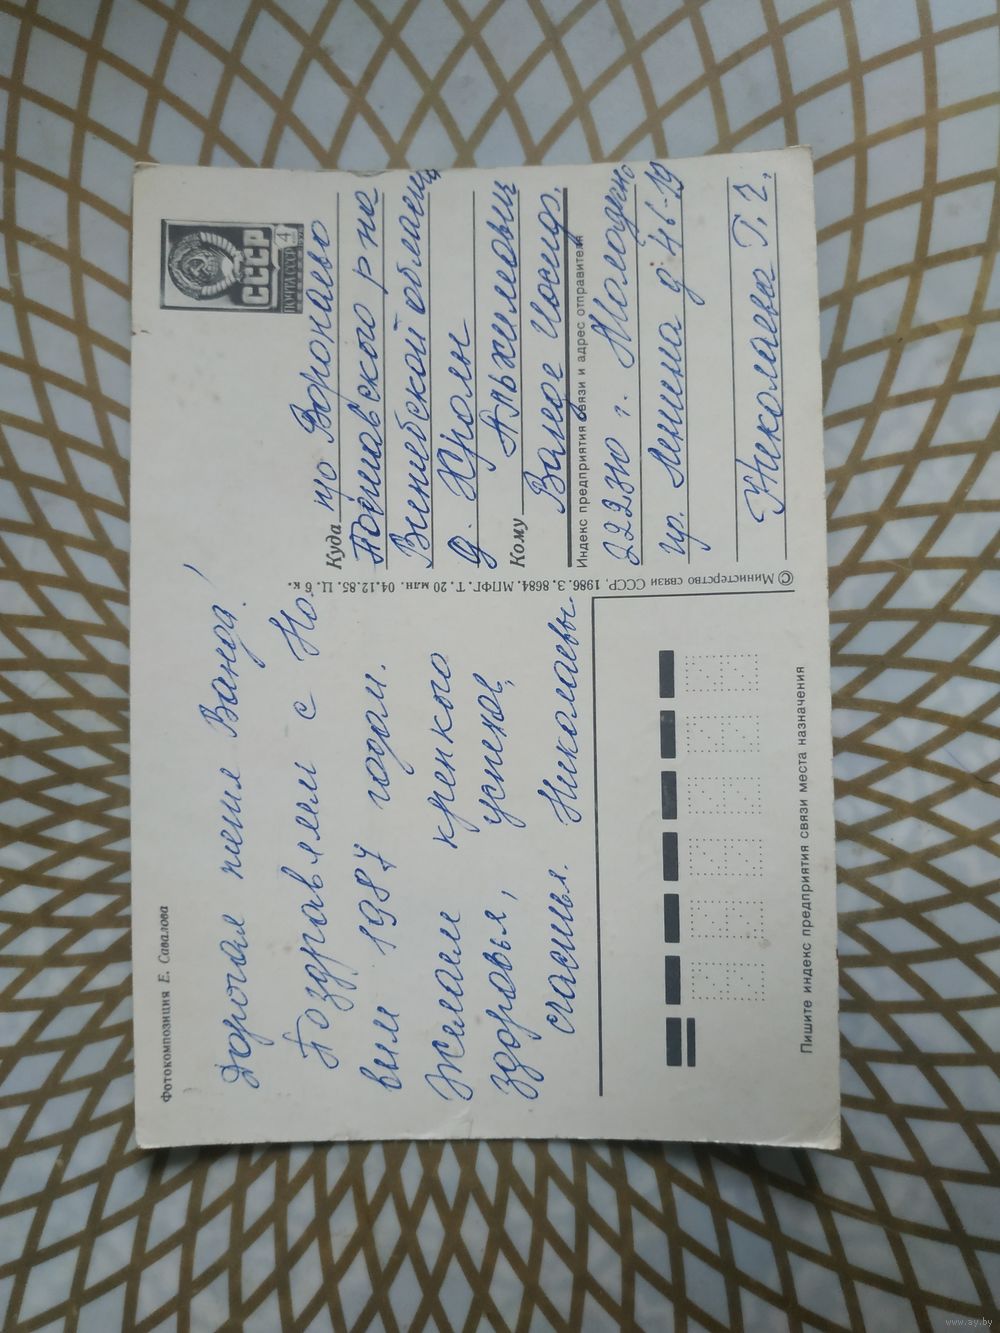 Фотокомпозиция Е. Савалова
Дорогая тетя Ванда!
Поздравляем с Но
вым 1987 годом.
Желаем крепкого
здоровья, успехов,
счастья. Николаевы.
Пишите индекс предприятия связи места назначения
© Министерство связи СССР. 1986. З. 8684. МПФГ. Т. 20 млн. 04.12.85. Ц. 6 к.
СССР
ПОЧТА СССР 4
Куда п/о Воропаево
Поставского р-на
Витебской области
д. Хролы
Кому Альхимович
Ванде Иосиф.
Индекс предприятия связи и адрес отправителя
222310 г. Молодечно
пр. Ленина д 46-19
Николаева Г. И.
www.ay.by